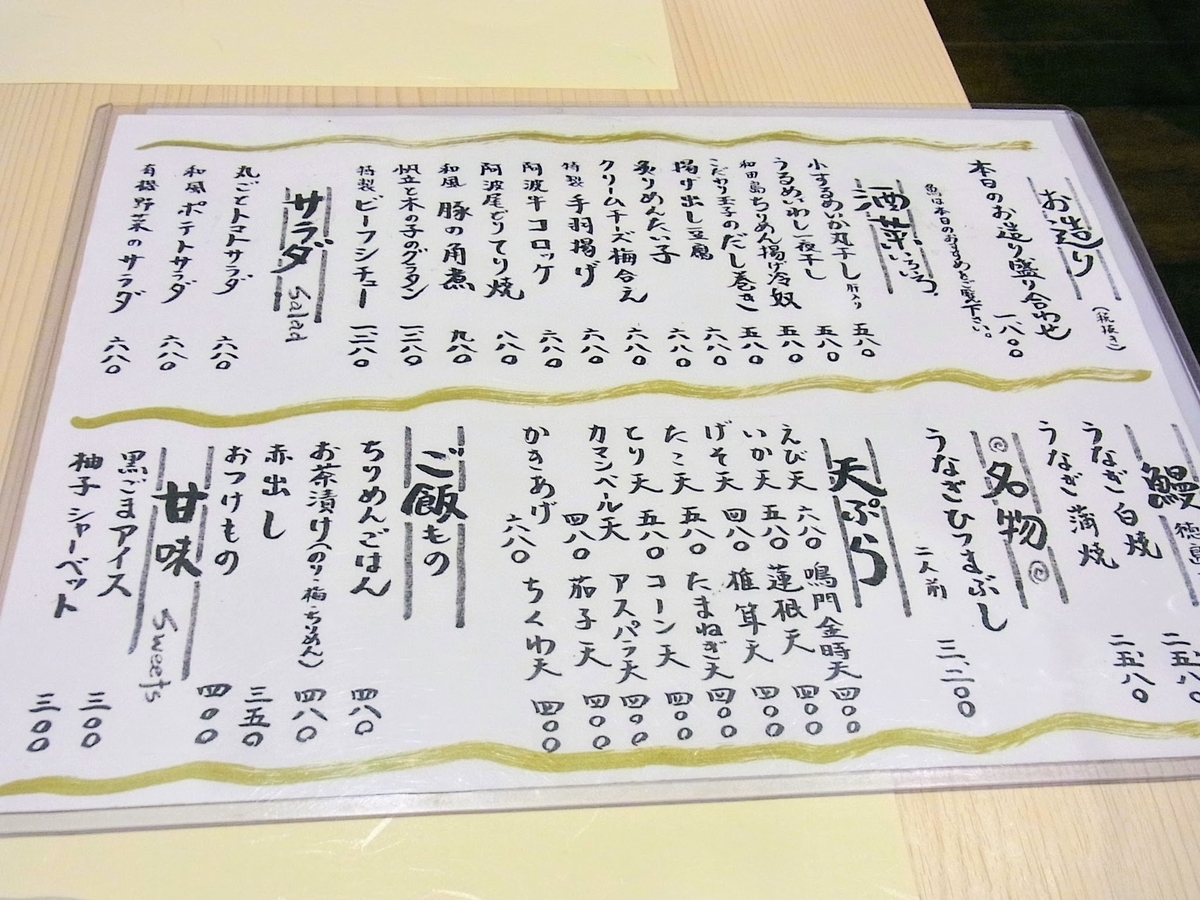 お造り
(税抜き)
本日のお造り盛り合わせ 一八〇〇
魚は本日のおすすめをご覧下さい。
酒菜いろいろ
小するめいか丸干し 肝入り 五八〇
うるめいわし一夜干し 五八〇
和田島ちりめん揚げ冷奴 五八〇
こだわり玉子のだし巻き 五八〇
揚げ出し豆腐 六八〇
炙りめんたい子 六八〇
クリームチーズ梅合え 六八〇
特製 手羽揚げ 六八〇
阿波牛コロッケ 六八〇
阿波尾どりてり焼 八八〇
和風 豚の角煮 九八〇
帆立と木の子のグラタン 一二八〇
特製 ビーフシチュー 一二八〇
サラダ Salad
丸ごとトマトサラダ 六八〇
和風ポテトサラダ 六八〇
有機野菜のサラダ 六八〇
鰻 徳島
うなぎ白焼 二五八〇
うなぎ蒲焼 二五八〇
名物
うなぎひつまぶし 二人前 三二〇〇
天ぷら
えび天 六八〇
いか天 五八〇
げそ天 四八〇
たこ天 五八〇
とり天 五八〇
カマンベール天 四八〇
かきあげ 六八〇
鳴門金時天 四〇〇
蓮根天 四〇〇
椎茸天 四〇〇
たまねぎ天 四〇〇
コーン天 四〇〇
アスパラ天 四〇〇
茄子天 四〇〇
ちくわ天 四〇〇
ご飯もの
ちりめんごはん 四八〇
お茶漬け(のり・梅・ちりめん) 四八〇
赤出し 三五〇
おつけもの 四〇〇
甘味 Sweets
黒ごまアイス 三〇〇
柚子シャーベット 三〇〇